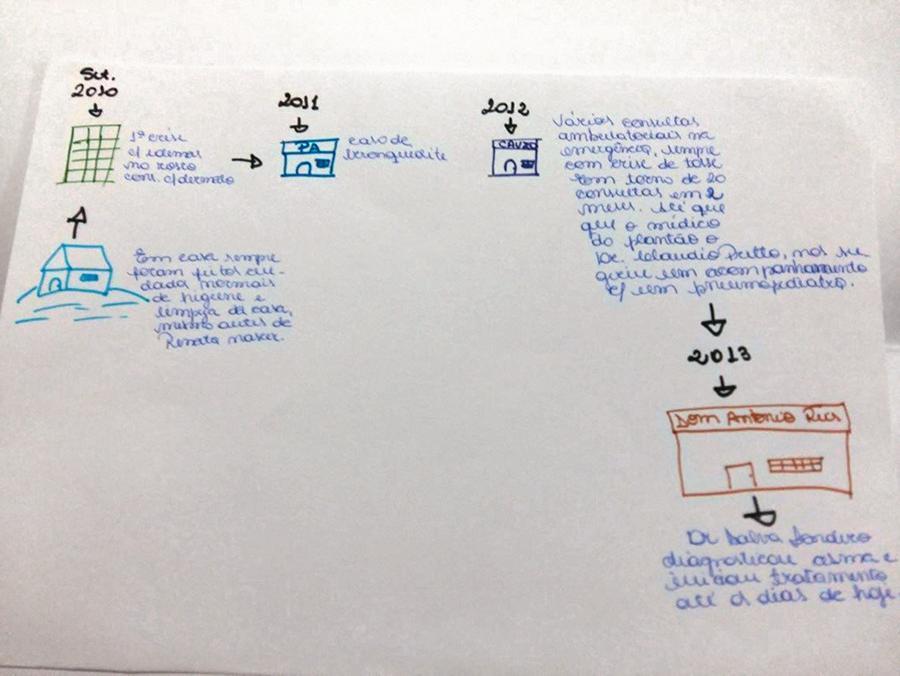 Set.
2010
1ª crise
c/ edemas
no rosto
cons. c/dermato
Em casa sempre
foram feitos cui-
dada normais
de higiene e
limpeza da casa,
mesmo antes de
Renata nascer.
2011
PA
caso de
bronquiolite
2012
CAUZO
Vários consultas
ambulatoriais na
emergência, sempre
com crise de tosse
em torno de 20
consultas em 2
meses. Até que
que o médico
do plantão o
Dr. Claudio nos su
geriu um acompanhamento
c/ um pneumopediatra.
2013
Dom Antonio Reis
Dr Dalva
diagnosticou asma e
iniciou tratamento
até os dias de hoje.